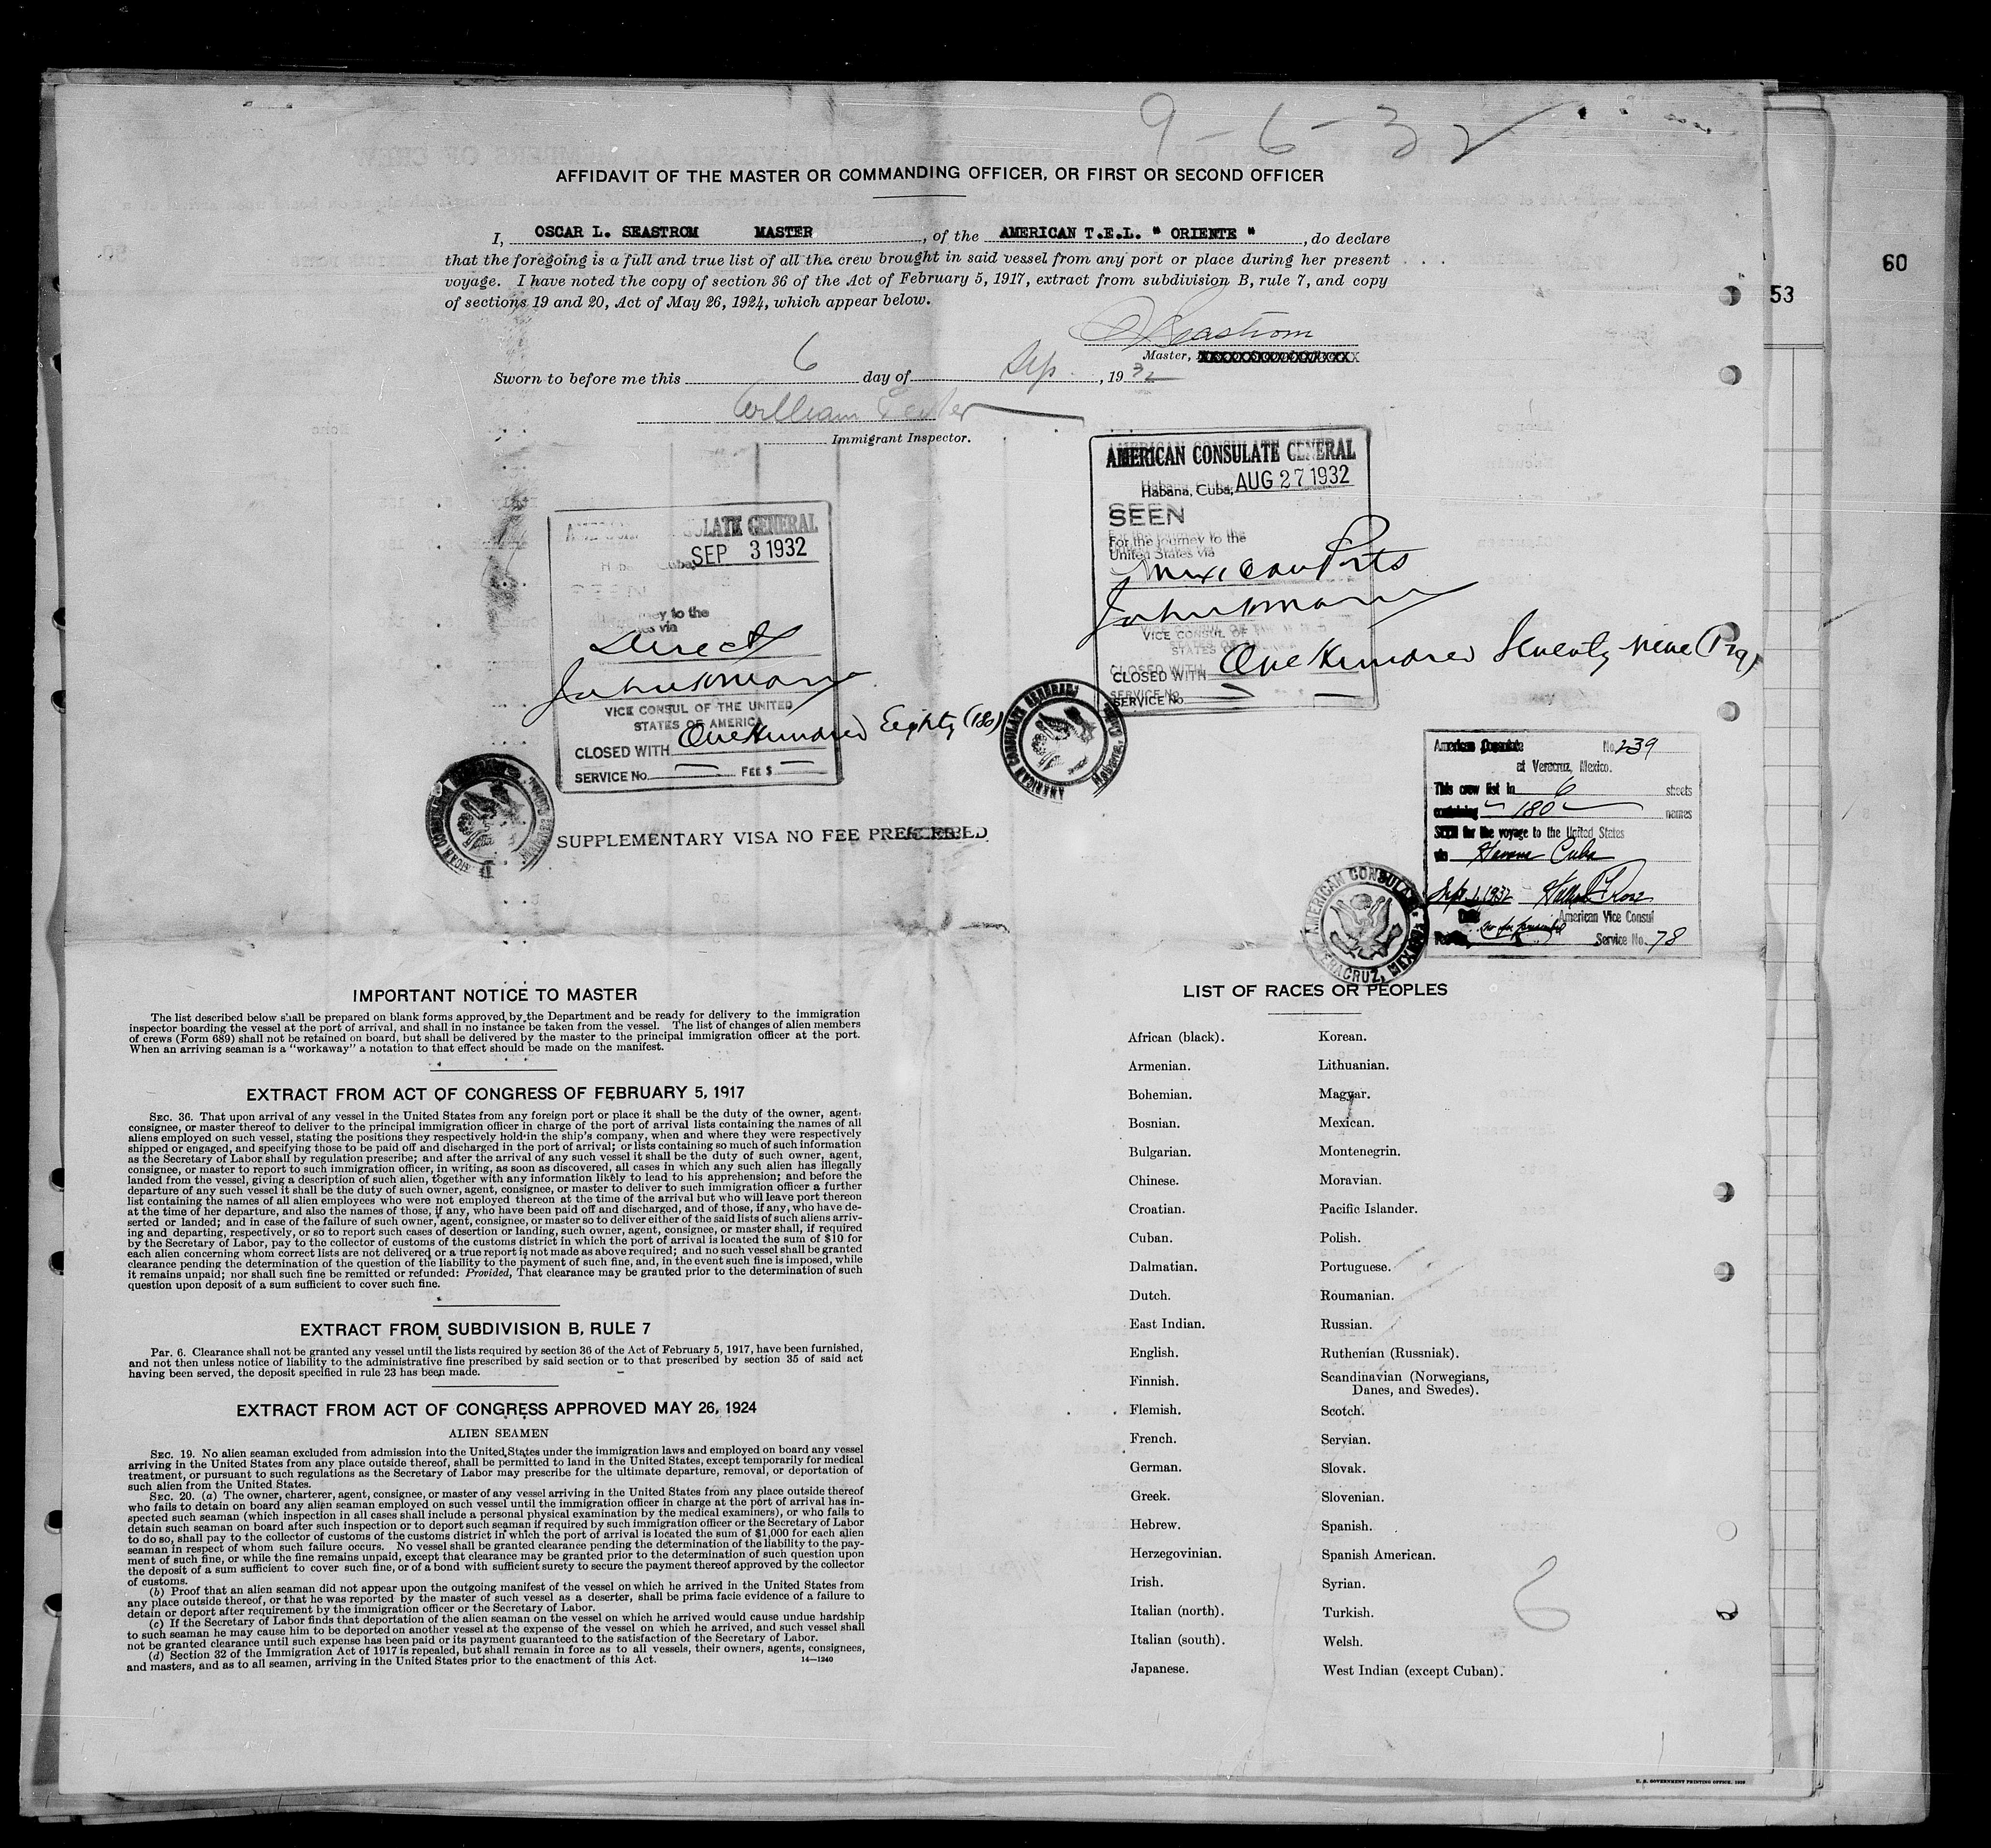 9-6-32
AFFIDAVIT OF THE MASTER OR COMMANDING OFFICER, OR FIRST OR SECOND OFFICER
I, OSCAR L. SEASTROM MASTER, of the AMERICAN T.E.L. " ORIENTE ", do declare
that the foregoing is a full and true list of all the crew brought in said vessel from any port or place during her present
voyage. I have noted the copy of section 36 of the Act of February 5, 1917, extract from subdivision B, rule 7, and copy
of sections 19 and 20, Act of May 26, 1924, which appear below.
60
53
Seastrom
Master,
Sworn to before me this 6 day of Sep., 1932
William
Immigrant Inspector.
AMERICAN CONSULATE GENERAL
Habana, Cuba, AUG 27 1932
SEEN
For the journey to the
United States via
Mexican Ports
VICE CONSUL OF
STATES OF
CLOSED WITH One Hundred Seventy nine (179)
SERVICE No.
CONSULATE GENERAL
Cuba, SEP 3 1932
SEEN
to the
via
Direct
VICE CONSUL OF THE UNITED
STATES OF AMERICA
CLOSED WITH One Hundred Eighty (180)
SERVICE No. FEE $
AMERICAN CONSULATE GENERAL Habana, Cuba
SUPPLEMENTARY VISA NO FEE PRESCRIBED
American Consulate No. 239
at Veracruz, Mexico.
This crew list in 6 sheets
containing 180 names
SEEN for the voyage to the United States
via Havana Cuba
Sep. 1, 1932
Date American Vice Consul
no fee prescribed Service No. 78
AMERICAN CONSULATE VERACRUZ, MEXICO
IMPORTANT NOTICE TO MASTER
The list described below shall be prepared on blank forms approved by the Department and be ready for delivery to the immigration
inspector boarding the vessel at the port of arrival, and shall in no instance be taken from the vessel. The list of changes of alien members
of crews (Form 689) shall not be retained on board, but shall be delivered by the master to the principal immigration officer at the port.
When an arriving seaman is a "workaway" a notation to that effect should be made on the manifest.
EXTRACT FROM ACT OF CONGRESS OF FEBRUARY 5, 1917
SEC. 36. That upon arrival of any vessel in the United States from any foreign port or place it shall be the duty of the owner, agent,
consignee, or master thereof to deliver to the principal immigration officer in charge of the port of arrival lists containing the names of all
aliens employed on such vessel, stating the positions they respectively hold in the ship's company, when and where they were respectively
shipped or engaged, and specifying those to be paid off and discharged in the port of arrival; or lists containing so much of such information
as the Secretary of Labor shall by regulation prescribe; and after the arrival of any such vessel it shall be the duty of such owner, agent,
consignee, or master to report to such immigration officer, in writing, as soon as discovered, all cases in which any such alien has illegally
landed from the vessel, giving a description of such alien, together with any information likely to lead to his apprehension; and before the
departure of any such vessel it shall be the duty of such owner, agent, consignee, or master to deliver to such immigration officer a further
list containing the names of all alien employees who were not employed thereon at the time of the arrival but who will leave port thereon
at the time of her departure, and also the names of those, if any, who have been paid off and discharged, and of those, if any, who have de-
serted or landed; and in case of the failure of such owner, agent, consignee, or master so to deliver either of the said lists of such aliens arriv-
ing and departing, respectively, or so to report such cases of desertion or landing, such owner, agent, consignee, or master shall, if required
by the Secretary of Labor, pay to the collector of customs of the customs district in which the port of arrival is located the sum of $10 for
each alien concerning whom correct lists are not delivered or a true report is not made as above required; and no such vessel shall be granted
clearance pending the determination of the question of the liability to the payment of such fine, and, in the event such fine is imposed, while
it remains unpaid; nor shall such fine be remitted or refunded: Provided, That clearance may be granted prior to the determination of such
question upon deposit of a sum sufficient to cover such fine.
EXTRACT FROM SUBDIVISION B, RULE 7
Par. 6. Clearance shall not be granted any vessel until the lists required by section 36 of the Act of February 5, 1917, have been furnished,
and not then unless notice of liability to the administrative fine prescribed by said section or to that prescribed by section 35 of said act
having been served, the deposit specified in rule 23 has been made.
EXTRACT FROM ACT OF CONGRESS APPROVED MAY 26, 1924
ALIEN SEAMEN
SEC. 19. No alien seaman excluded from admission into the United States under the immigration laws and employed on board any vessel
arriving in the United States from any place outside thereof, shall be permitted to land in the United States, except temporarily for medical
treatment, or pursuant to such regulations as the Secretary of Labor may prescribe for the ultimate departure, removal, or deportation of
such alien from the United States.
SEC. 20. (a) The owner, charterer, agent, consignee, or master of any vessel arriving in the United States from any place outside thereof
who fails to detain on board any alien seaman employed on such vessel until the immigration officer in charge at the port of arrival has in-
spected such seaman (which inspection in all cases shall include a personal physical examination by the medical examiners), or who fails to
detain such seaman on board after such inspection or to deport such seaman if required by such immigration officer or the Secretary of Labor
to do so, shall pay to the collector of customs of the customs district in which the port of arrival is located the sum of $1,000 for each alien
seaman in respect of whom such failure occurs. No vessel shall be granted clearance pending the determination of the liability to the pay-
ment of such fine, or while the fine remains unpaid, except that clearance may be granted prior to the determination of such question upon
the deposit of a sum sufficient to cover such fine, or of a bond with sufficient surety to secure the payment thereof approved by the collector
of customs.
(b) Proof that an alien seaman did not appear upon the outgoing manifest of the vessel on which he arrived in the United States from
any place outside thereof, or that he was reported by the master of such vessel as a deserter, shall be prima facie evidence of a failure to
detain or deport after requirement by the immigration officer or the Secretary of Labor.
(c) If the Secretary of Labor finds that deportation of the alien seaman on the vessel on which he arrived would cause undue hardship
to such seaman he may cause him to be deported on another vessel at the expense of the vessel on which he arrived, and such vessel shall
not be granted clearance until such expense has been paid or its payment guaranteed to the satisfaction of the Secretary of Labor.
(d) Section 32 of the Immigration Act of 1917 is repealed, but shall remain in force as to all vessels, their owners, agents, consignees,
and masters, and as to all seamen, arriving in the United States prior to the enactment of this Act. 14—1240
LIST OF RACES OR PEOPLES
African (black). Korean.
Armenian. Lithuanian.
Bohemian. Magyar.
Bosnian. Mexican.
Bulgarian. Montenegrin.
Chinese. Moravian.
Croatian. Pacific Islander.
Cuban. Polish.
Dalmatian. Portuguese.
Dutch. Roumanian.
East Indian. Russian.
English. Ruthenian (Russniak).
Finnish. Scandinavian (Norwegians,
Danes, and Swedes).
Flemish. Scotch.
French. Servian.
German. Slovak.
Greek. Slovenian.
Hebrew. Spanish.
Herzegovinian. Spanish American.
Irish. Syrian.
Italian (north). Turkish.
Italian (south). Welsh.
Japanese. West Indian (except Cuban).
6
U. S. GOVERNMENT PRINTING OFFICE.